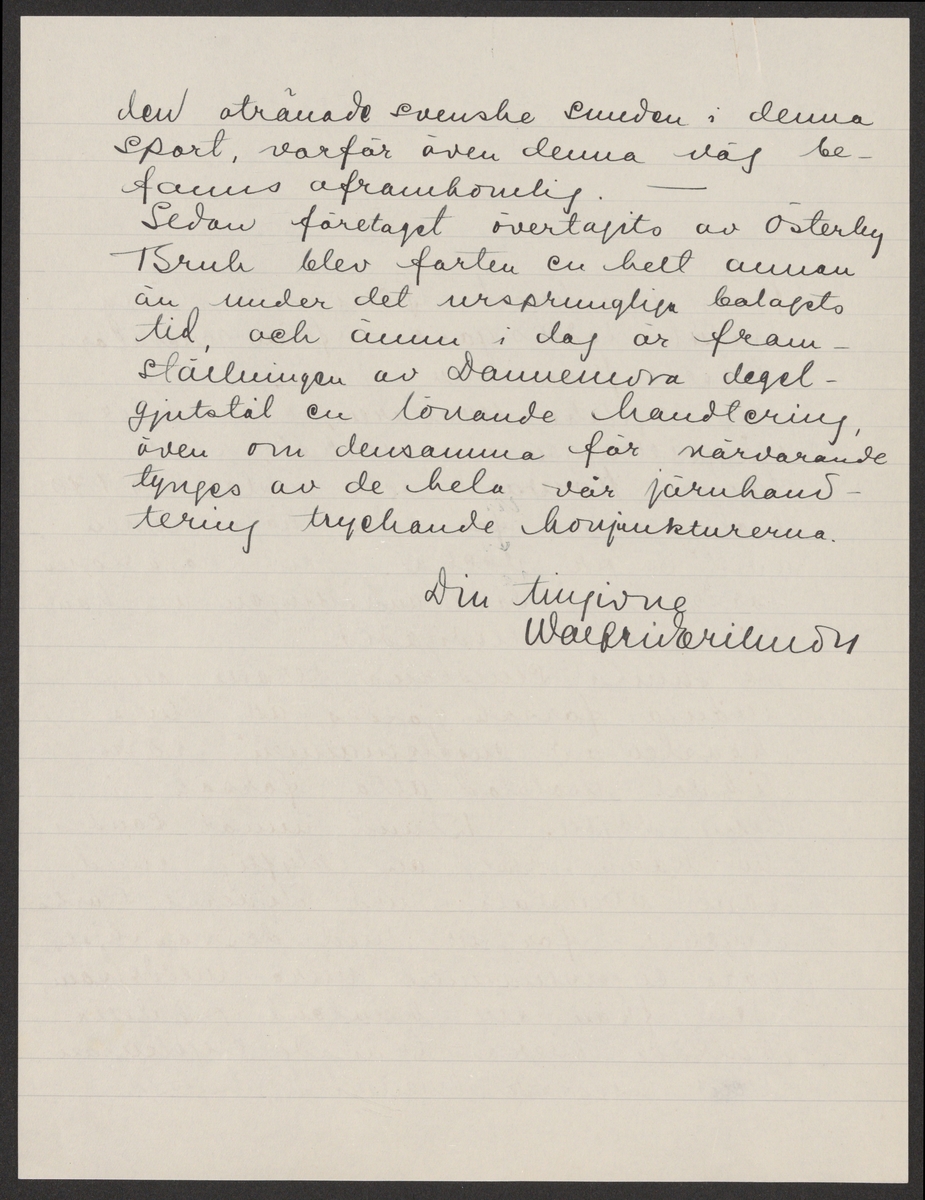 den otränade svenske smeden i denna
sport, varför även denna väg be-
fanns oframkomlig. —
Sedan företaget övertagits av Österby
Bruk blev farten en helt annan
än under det ursprungliga bolagets
tid, och ännu i dag är fram-
ställningen av Dannemora degel-
gjutstål en lönande handtering,
även om densamma för närvarande
tynges av de hela vår järnhand-
tering tryckande konjunkturerna.
Din tillgivne
Walfrid Eriksson